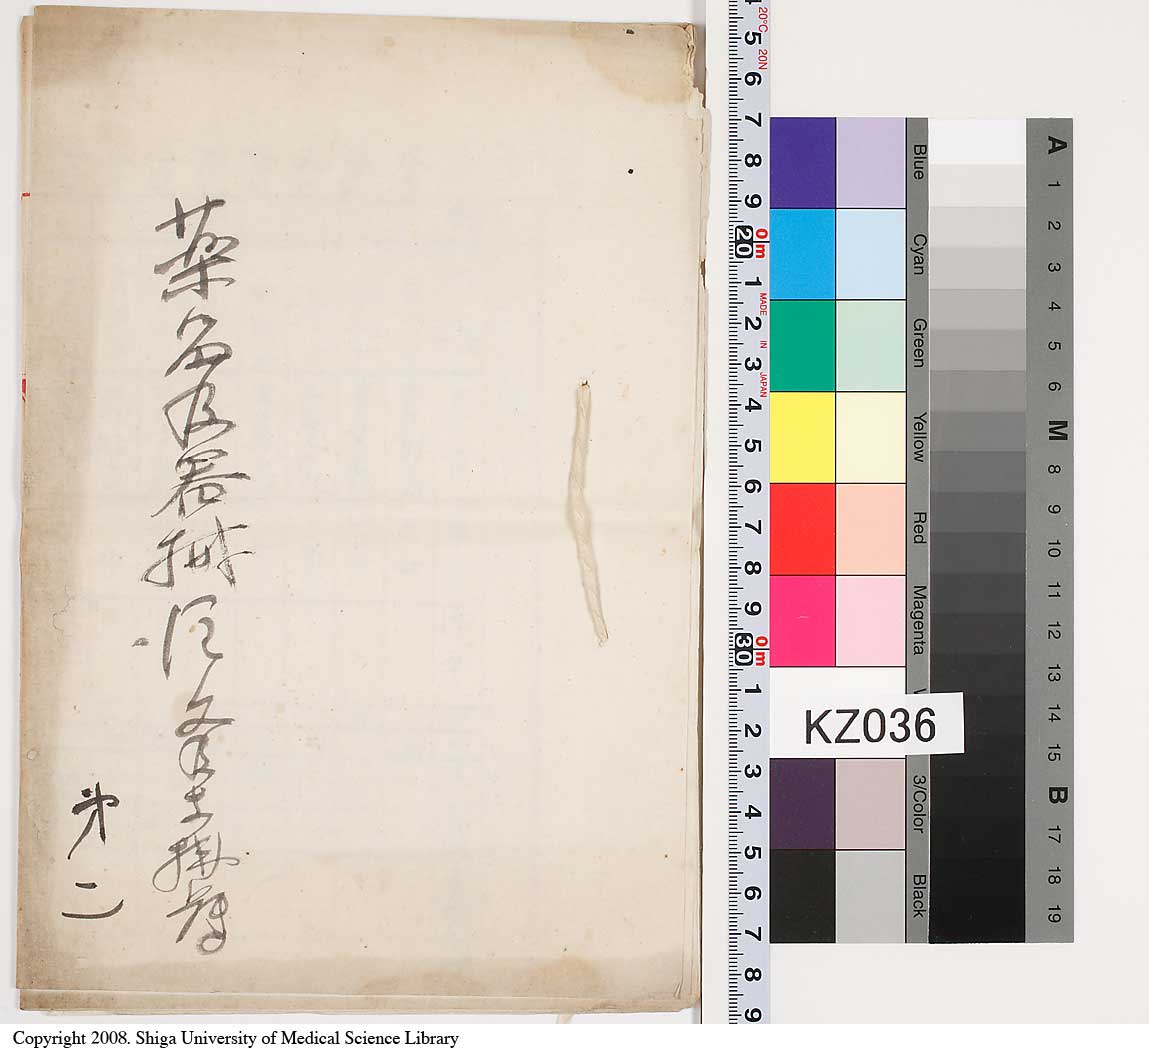 薬品及器械
第二
KZ036
20°C 20N
MADE IN JAPAN
5 6 7 8 9 20 1 2 3 4 5 6 7 8 9 30 1 2 3 4 5 6 7 8 9
0m
0m
Blue
Cyan
Green
Yellow
Red
Magenta
3/Color
Black
A 1 2 3 4 5 6 M 8 9 10 11 12 13 14 15 B 17 18 19
Copyright 2008. Shiga University of Medical Science Library